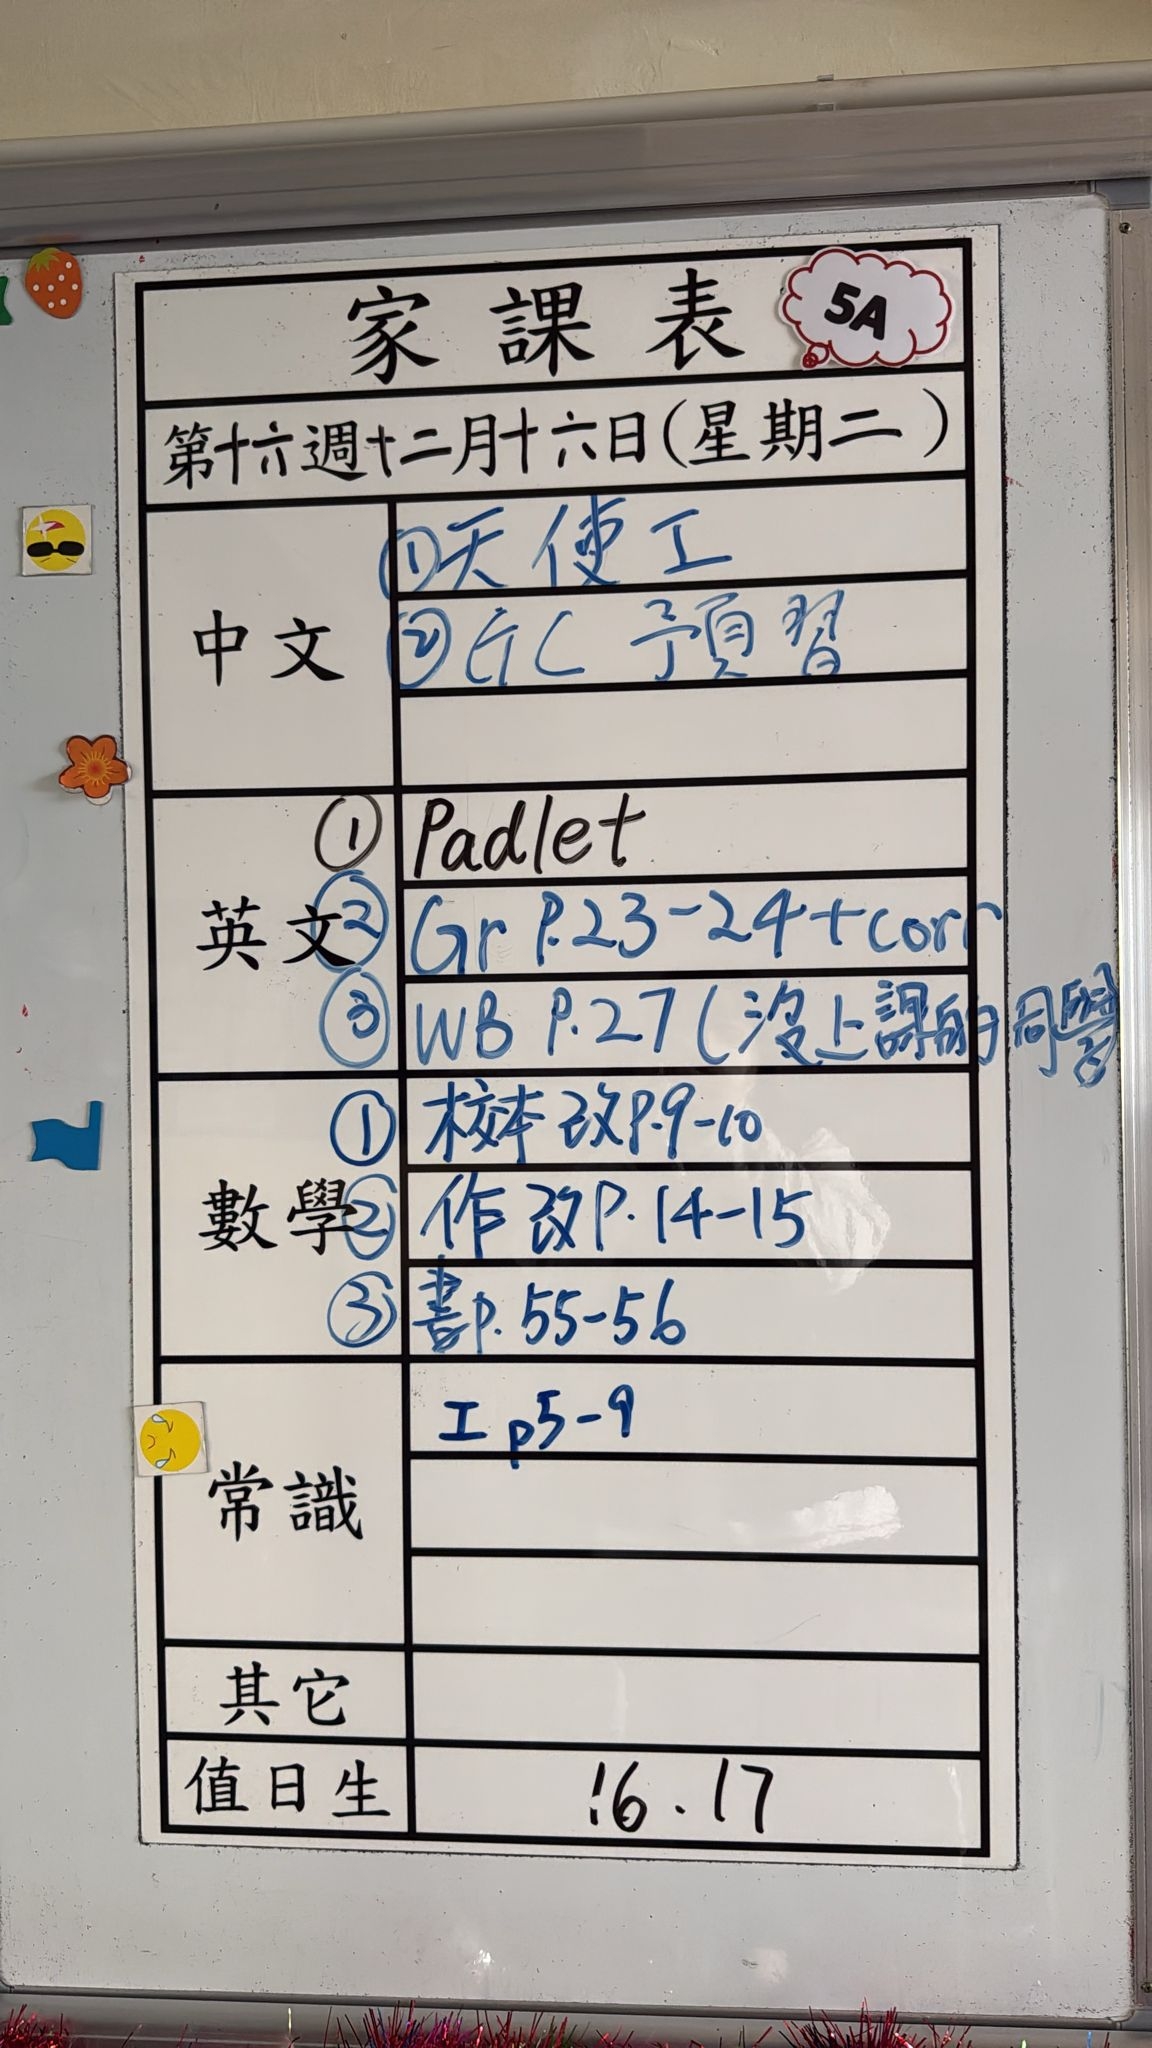 家課表 5A
第十六週十二月十六日(星期二)
中文
①天使工
②GC 預習
英文
① Padlet
② Gr P.23-24+corr
③ WB P.27 (沒上課的同學
數學
① 校本改P.9-10
② 作改P.14-15
③ 書P.55-56
常識
工 p5-9
其它
值日生
16.17